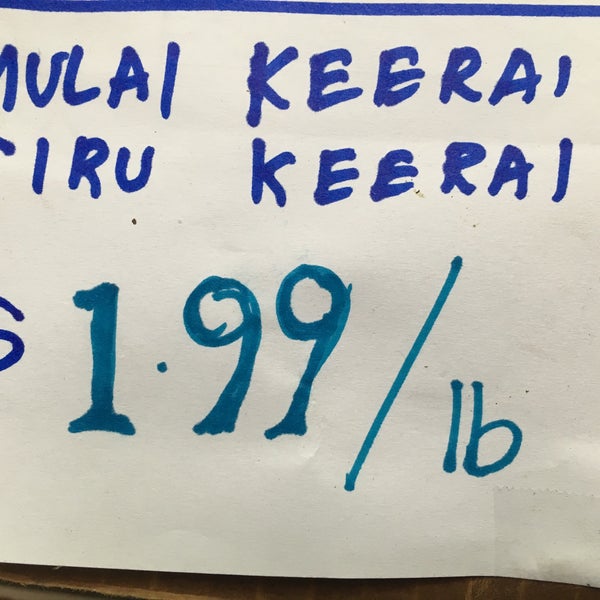 MULAI KEERAI
SIRU KEERAI
$ 1.99/lb